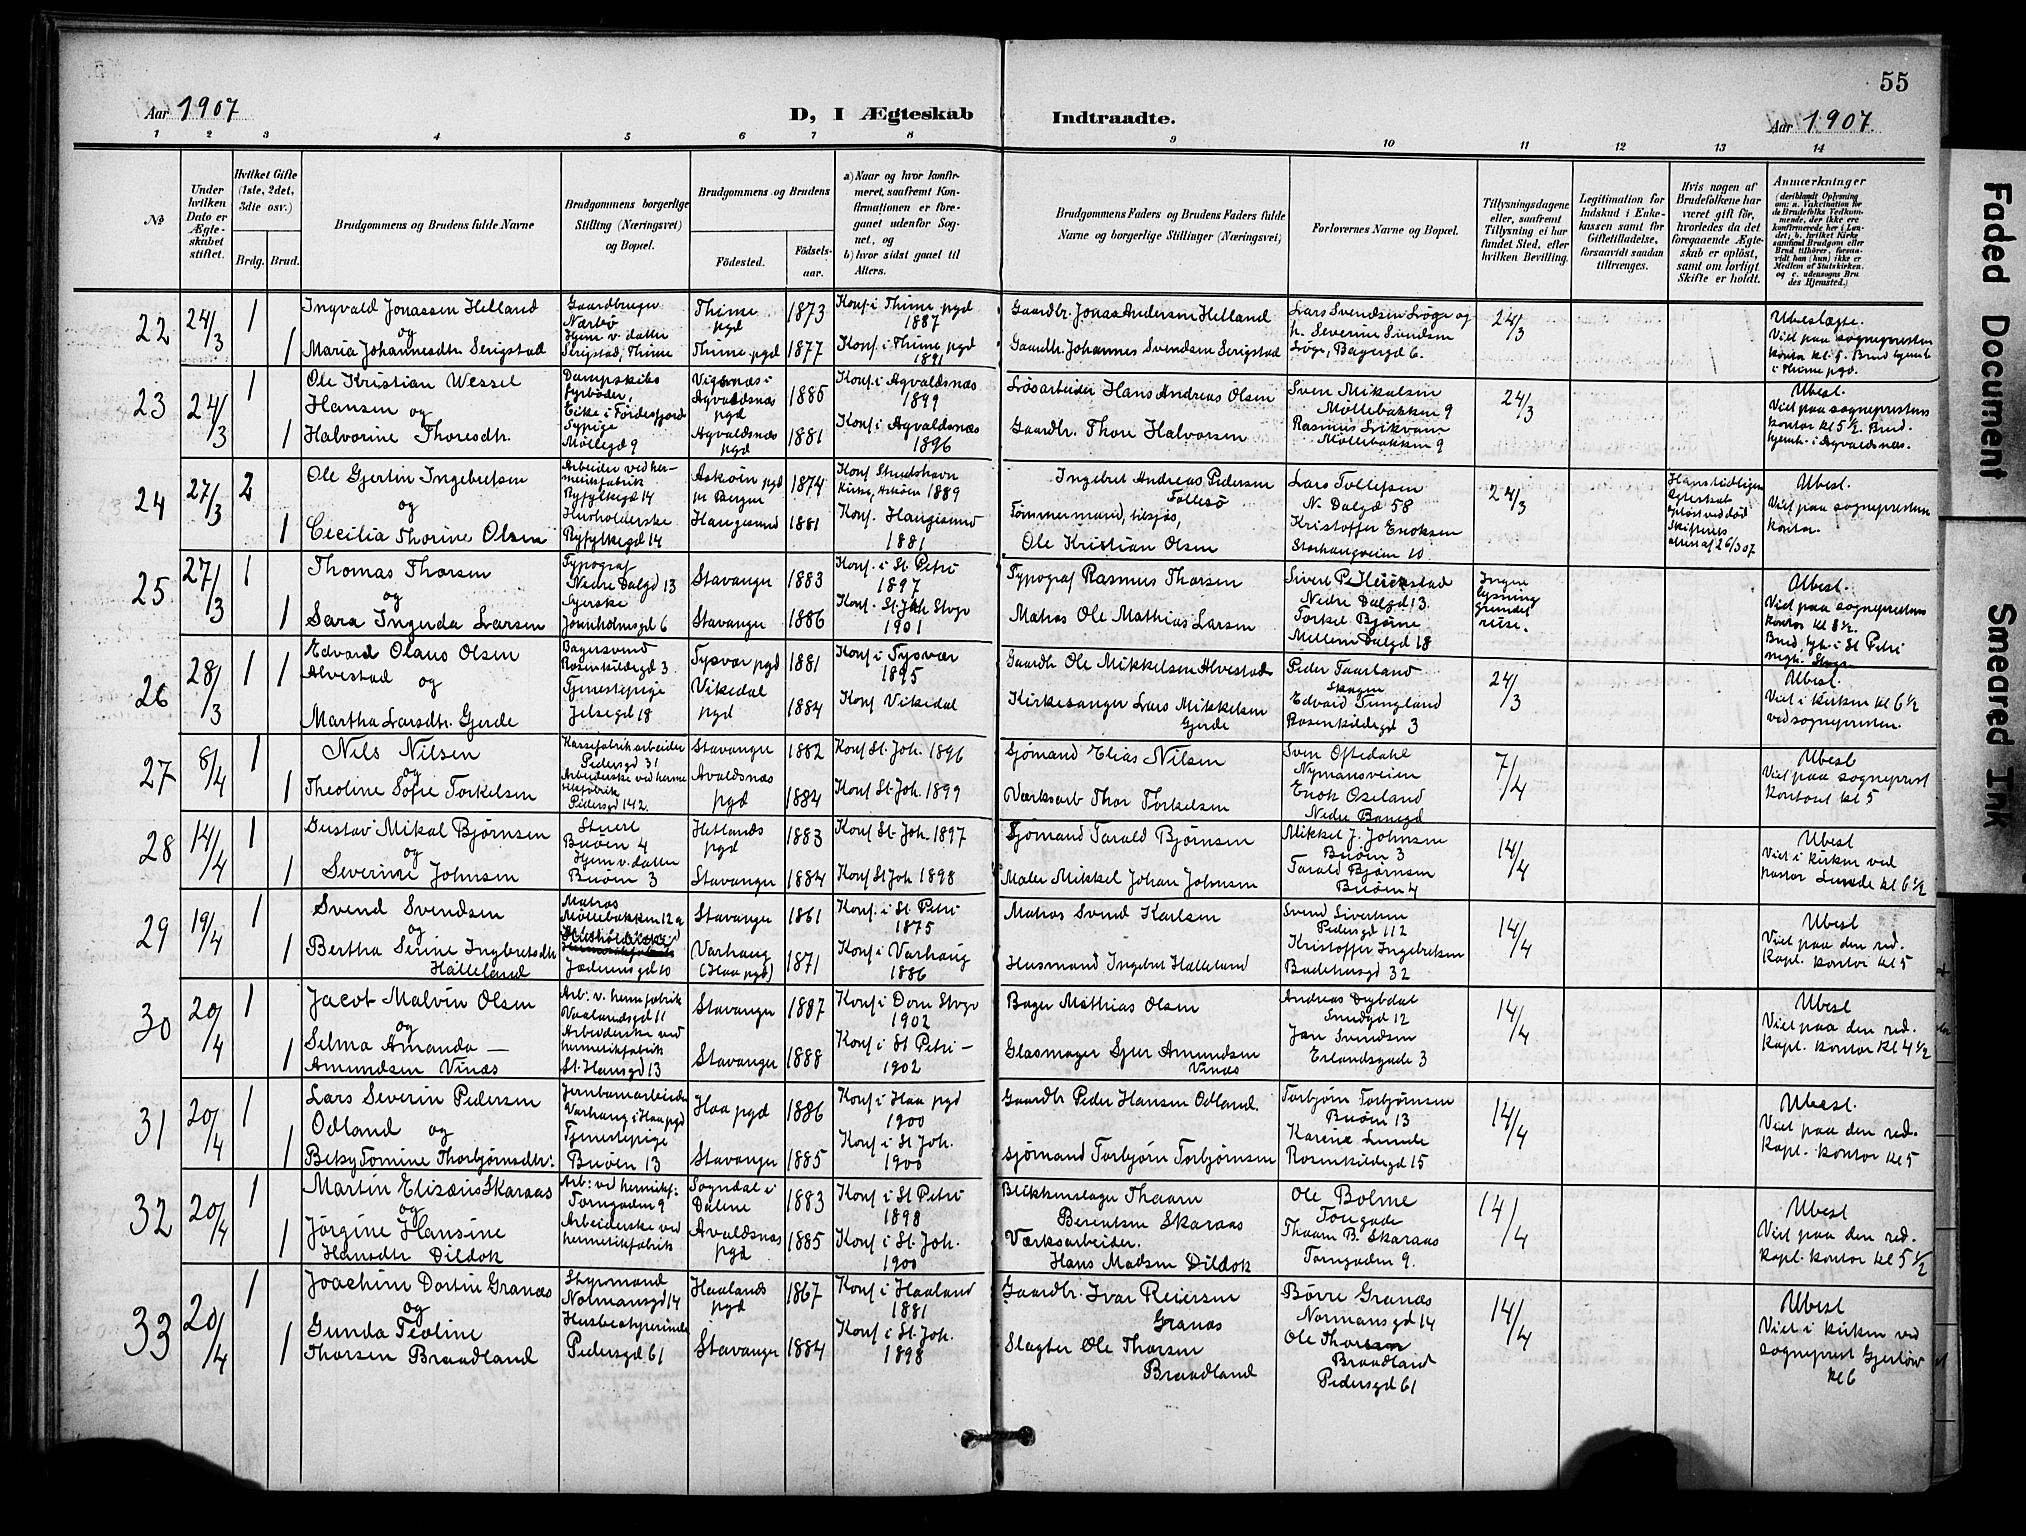 55
Aar 1907
D, I Ægteskab
Indtraadte.
Aar 1907.
1 2 3 4 5 6 7 8 9 10 11 12 13 14
No
Under hvilken Dato er Ægteskabet stiftet.
Hvilket Gifte (1ste, 2det, 3die osv.)
Brdg. Brud.
Brudgommens og Brudens fulde Navne
Brudgommens borgerlige Stilling (Næringsvei) og Bopæl.
Brudgommens og Brudens
Födested.
Födsels-aar.
a) Naar og hvor konfirmeret, saafremt Konfirmationen er foregaaet udenfor Sognet, og
b) hvor sidst gaaet til Alters.
Brudgommens Faders og Brudens Faders fulde Navne og borgerlige Stillinger (Næringsvei)
Forlovernes Navne og Bopæl.
Tillysningsdagene eller, saafremt Tillysning ei har fundet Sted, efter hvilken Bevilling.
Legitimation for Indskud i Enkekassen samt for Giftetilladelse, forsaavidt saadan tiltrænges.
Hvis nogen af Brudefolkene har været gift för, hvorledes da det foregaaende Ægteskab er oplöst, samt om lovligt Skifte er holdt.
Anmærkninger
22 24/3 1 Ingvald Jonassen Helland Gaardbruger Nærbø Thime pgd 1873 Konf i Thime pgd 1887 Gaardbr. Jonas Andersen Helland Lars Svendsen Loge og 24/3 Ubeslægte.
og
1 Maria Johannesdtr. Serigstad Hjem v. datter Serigstad, Thime Thime pgd 1877 Konf. i Thime pgd 1891 Gaardbr. Johannes Svendsen Serigstad fr. Severine Svendsen Loge, Bagergd 6. Viet paa sogneprestens kontor kl. Brud hjemh. i Thime pgd.
23 24/3 1 Ole Kristian Wessel Hansen og Dampskibs fyrbøder, Eike i Førdesfjord Vigsnæs i Agvaldsnæs pgd 1885 Konf. i Agvaldsnæs 1899 Løsarbeider Hans Andreas Olsen Sven Mikalsen Møllebakken 9 24/3 Ubesl.
1 Halvorine Thoresdtr. Sypige Møllegd 9 Agvaldsnæs pgd 1881 Konf. i Agvaldsnæs 1896 Gaardbr. Thore Halvorsen Rasmus Likvam Møllebakken 9 Viet paa sogneprestens kontor kl 5 1/2. Brud. hjemh. i Agvaldsnæs.
24 27/3 2 Ole Gjertin Ingebretsen Arbeider ved hermetikfabrik Ryfylkegd 14 Askøen pgd pr Bergen 1874 Konf. Strudshavn Kirke, Askøen 1889 Ingebret Andreas Pedersen Follesø Lars Tollefsen N. Dalgd 58 24/3 Hans tidligere Egteskab opløst ved død Skifteretsattest af 26/3 07 Ubesl.
og
1 Cecilia Thorine Olsen Husholderske Ryfylkegd 14 Haugesund 1881 Konf. Haugesund 1881 Tømmermand, tilsjøs, Ole Kristian Olsen Kristoffer Enoksen Storhaugveien 10 Viet paa sogneprestens kontor.
25 27/3 1 Thomas Thorsen Typograf Nedre Dalgd 13 Stavanger 1883 Konf. i St Petri 1897 Typograf Rasmus Thorsen Sivert P. Heierstad Nedre Dalgd 13. Ingen lysning grundet reise. Ubesl.
og
1 Sara Ingerda Larsen Syerske Jorenholmsgd 6 Stavanger 1886 Konf. St. Joh Stvgr 1901 Matros Ole Mathias Larsen Torkel Bjørne Mellem Dalgd 18 Viet paa sogneprestens kontor kl 8 1/2. Brud, hjh. i St Petri
26 28/3 1 1 Edvard Olaus Olsen Alvestad og Bagersvend Rosenkildegd 3 Tysvær pgd 1881 Konf i Tysvær 1895 Gaardbr Ole Mikkelsen Alvestad Peder Taarland Skagen 24/3 Ubesl.
Martha Larsdtr. Gjerde Tjenestepige Jelsegd 18 Vikedal pgd 1884 Konf Vikedal Kirkesanger Lars Mikkelsen Gjerde Edvard Tungland Rosenkildegd 3 Viet i kirken kl 6 1/2 ved sognepresten.
27 8/4 1 Nils Nilsen Kassefabrikarbeider Pedersgd 31 Stavanger 1882 Konf St. Joh. 1896 Sjømand Elias Nilsen Sven Oftedahl Nymansveien 7/4 Ubesl
og
1 Theoline Sofie Torkelsen Arbeiderske ved hermetikfabrik Pedersgd 142. Avaldsnæs pgd 1884 Konf St. Joh. 1899 Værksarb Thor Torkelsen Enok Oseland Nedre Banegd Viet paa sogneprest kontoret kl 5
28 14/4 1 Gustav Mikal Bjørnsen Stuert Buøen 4 Hetlands pgd 1883 Konf St. Joh. 1897 Sjømand Tarald Bjørnsen Mikkel J. Johnsen Buøen 3 14/4 Ubesl
og
1 Severine Johnsen Hjem v. datter Buøen 3 Stavanger 1884 Konf St Joh. 1898 Maler Mikkel Johan Johnsen Tarald Bjørnsen Buøen 4 Viet i kirken ved pastor Lunde kl 6 1/2
29 19/4 1 Svend Svendsen Matros Møllebakken 12a Stavanger 1861 Konf. i St. Petri 1875 Matros Svend Karlsen Svend Sivertsen Pedersgd 112 14/4 Ubesl
og
1 Bertha Serine Ingbretsdtr Halleland Husholderske Jæderensgd 10 Varhaug (Haa pgd) 1871 Konf i Varhaug 1886 Husmand Ingebret Halleland Kristoffer Ingebretsen Badehusgd 32 Viet paa den red. Kapl. kontor kl 5
30 20/4 1 Jacob Malvin Olsen Arb. v. herm. fabrik Vaalandsgd 11 Stavanger 1887 Konf i Dom Stvgr 1902 Bager Mathias Olsen Andreas Dybdal Smedgd 12 14/4 Ubesl
og
1 Selma Amanda — Amundsen Vinæs Arbeiderske ved hermetikfabrik St. Hansgd 13 Stavanger 1888 Konf i St Petri - 1902 Glasmager Sjur Amundsen Vinæs Jan Svendsen Erlandsgade 3 Viet paa den red. Kapl. kontor kl 4 1/2
31 20/4 1 Lars Severin Pedersen Odland og Jernbanearbeider Varhaug i Haa pgd Haa pgd 1886 Konf i Haa pgd 1900 Gaardbr Peder Hansen Odland. Torbjørn Torbjørnsen Buøen 13 14/4 Ubesl.
1 Beky Tomine Thorbjørnsdtr. Tjenestepige Buøen 13 Stavanger 1885 Konf i St Joh. 1900 sjømand Torbjørn Torbjørnsen Karene Lunde Rosenkildegd 15 Viet paa den red. Kapl. kontor kl 5
32 20/4 1 Martin Elizæus Skaraas Arb. ved hermtkf. Torngaden 9 Sogndal i Dalene 1883 Konf i St Petri 1898 Blikkenslager Thaam Berentsen Skaraas Ole Bolme Torvgade 14/4 Ubesl
og
1 Jørgine Hansine Hansdtr Dildok Arbeiderske ved hermetikfabrik Avaldsnæs pgd 1885 Konf i St. Joh. 1900 Værksarbeider. Hans Madsen Dildok Thaam B. Skaraas Torngaden 9. Viet paa den red. Kapl. kontor kl 5 1/2
33 20/4 1 Joachim Dortin Granæs Styrmand Normansgd 14 Haalands pgd 1867 Konf i Haaland 1881 Gaardbr. Ivar Reiersen Granæs Børre Granæs Normansgd 14 14/4 Ubesl
og
1 Gunda Teoline Thorsen Braadland Husbestyrerinde Pedersgd 61 Stavanger 1884 Konf i St. Joh. 1898 Slagter Ole Thorsen Braadland Ole Thorsen Braadland Pedersgd 61 Viet i kirken ved sogneprest Gjerløw kl 6
Faded Document
Smeared Ink